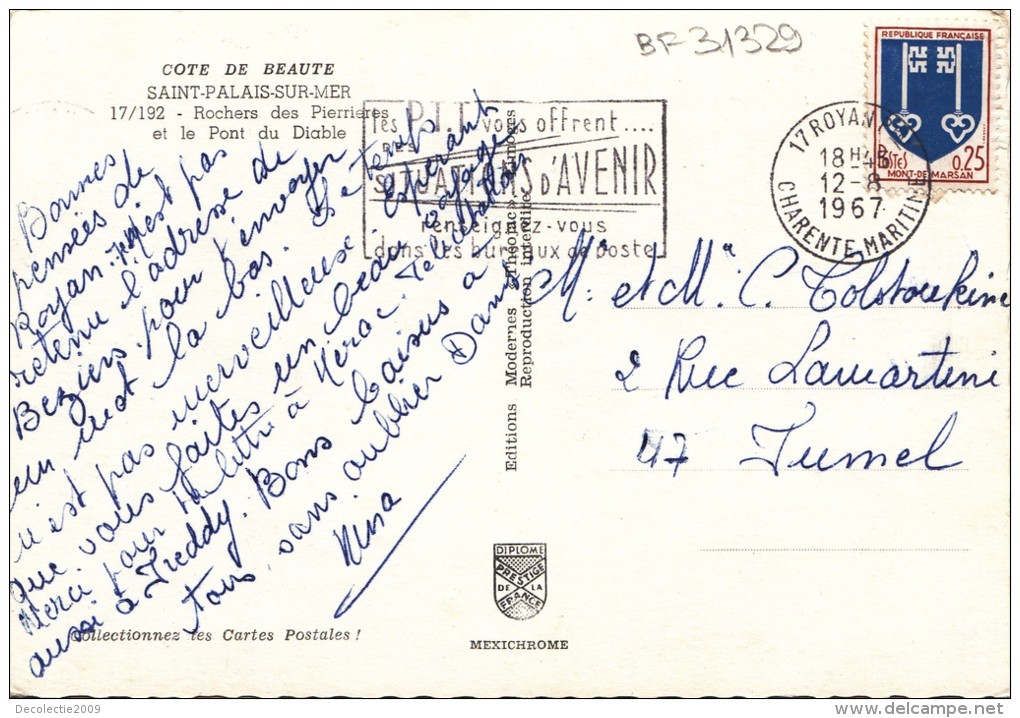 BF 31329
COTE DE BEAUTE
SAINT-PALAIS-SUR-MER
17/192 - Rochers des Pierrières
et le Pont du Diable
les P.T.T vous offrent ....
DES
SITUATIONS D'AVENIR
renseignez-vous
dans les bureaux de poste
17 ROYAN
18 H 45
12-8
1967
CHARENTE MARITIME
REPUBLIQUE FRANÇAISE
POSTES 0.25
MONT-DE-MARSAN
Bonnes
pensées de
Royan. n'est pas
retenu l'adresse de
Beziers pour t'envoyer
un mot la bas. Le temps
n'est pas merveilleux. Espérant
que vous faites un beau voyage
Merci pour ta lettre à Nérac.
aussi à Freddy. Bons baisers à
tous, sans oublier Dans
Nina
Editions Modernes « Théojac » Limoges
Reproduction interdite
Mr et Mme C. Tolstoukine
2 Rue Lamartine
47 Fumel
DIPLOME
PRESTIGE
DE LA
FRANCE
Collectionnez les Cartes Postales !
MEXICHROME
Decolectie2009